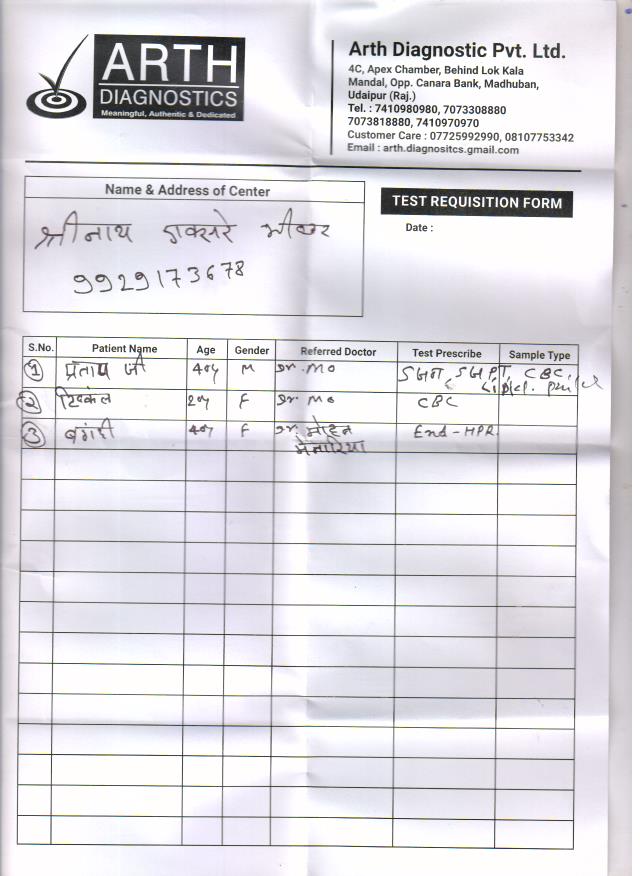 ARTH
DIAGNOSTICS
Meaningful, Authentic & Dedicated
Arth Diagnostic Pvt. Ltd.
4C, Apex Chamber, Behind Lok Kala
Mandal, Opp. Canara Bank, Madhuban,
Udaipur (Raj.)
Tel. : 7410980980, 7073308880
7073818880, 7410970970
Customer Care : 07725992990, 08107753342
Email : arth.diagnositcs.gmail.com
Name & Address of Center
श्रीनाथ
9929173678
TEST REQUISITION FORM
Date :
S.No. Patient Name Age Gender Referred Doctor Test Prescribe Sample Type
1 प्रताप जी M Dr. Mo SGPT, CBC,
2 F Dr. Mo CBC
3 F Dr. मोहन End-HPR
मेनारिया